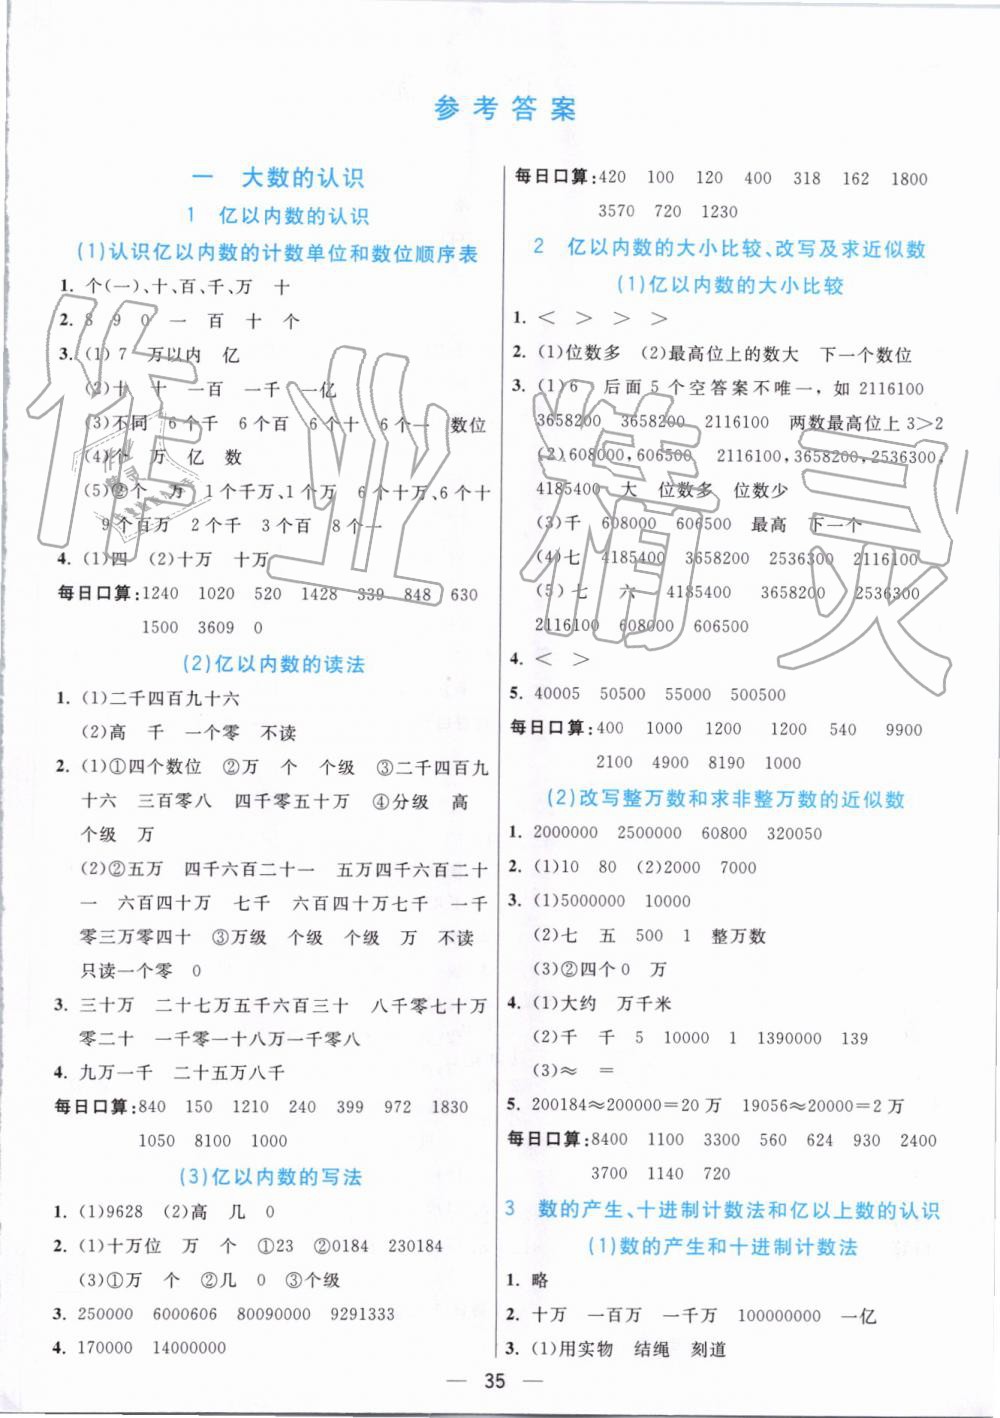 参考答案
一 大数的认识
1 亿以内数的认识
(1)认识亿以内数的计数单位和数位顺序表
1. 个(一)、十、百、千、万 十
2. 8 9 0 一 百 十 个
3. (1)7 万以内 亿
(2)十 十 一百 一千 一亿
(3)不同 6个千 6个百 6个十 6个一 数位
(4)个 万 亿 数
(5)②个 万 1个千万、1个万 6个十万、6个十
9个百万 2个千 3个百 8个一
4. (1)四 (2)十万 十万
每日口算:1240 1020 520 1428 339 848 630
1500 3609 0
(2)亿以内数的读法
1. (1)二千四百九十六
(2)高 千 一个零 不读
2. (1)①四个数位 ②万 个 个级 ③二千四百九
十六 三百零八 四千零五十万 ④分级 高
个级 万
(2)②五万 四千六百二十一 五万四千六百二十
一 六百四十万 七千 六百四十万七千 一千
零三万零四十 ③万级 个级 个级 万 不读
只读一个零 0
3. 三十万 二十七万五千六百三十 八千零七十万
零二十 一千零一十八万一千零八
4. 九万一千 二十五万八千
每日口算:840 150 1210 240 399 972 1830
1050 8100 1000
(3)亿以内数的写法
1. (1)9628 (2)高 几 0
2. (1)十万位 万 个 ①23 ②0184 230184
(3)①万 个 ②几 0 ③个级
3. 250000 6000606 80090000 9291333
4. 170000 14000000
每日口算:420 100 120 400 318 162 1800
3570 720 1230
2 亿以内数的大小比较、改写及求近似数
(1)亿以内数的大小比较
1. < > > >
2. (1)位数多 (2)最高位上的数大 下一个数位
3. (1)6 后面5个空答案不唯一,如 2116100
3658200 3658200 2116100 两数最高位上3>2
(2)608000,606500 2116100,3658200,2536300,
4185400 大 位数多 位数少
(3)千 608000 606500 最高 下一个
(4)七 4185400 3658200 2536300 2116100
(5)七 六 4185400 3658200 2536300
2116100 608000 606500
4. < >
5. 40005 50500 55000 500500
每日口算:400 1000 1200 1200 540 9900
2100 4900 8190 1000
(2)改写整万数和求非整万数的近似数
1. 2000000 2500000 60800 320050
2. (1)10 80 (2)2000 7000
3. (1)5000000 10000
(2)七 五 500 1 整万数
(3)②四个0 万
4. (1)大约 万千米
(2)千 千 5 10000 1 1390000 139
(3)≈ =
5. 200184≈200000=20万 19056≈20000=2万
每日口算:8400 1100 3300 560 624 930 2400
3700 1140 720
3 数的产生、十进制计数法和亿以上数的认识
(1)数的产生和十进制计数法
1. 略
2. 十万 一百万 一千万 100000000 一亿
3. (1)用实物 结绳 刻道
— 35 —
作业精灵